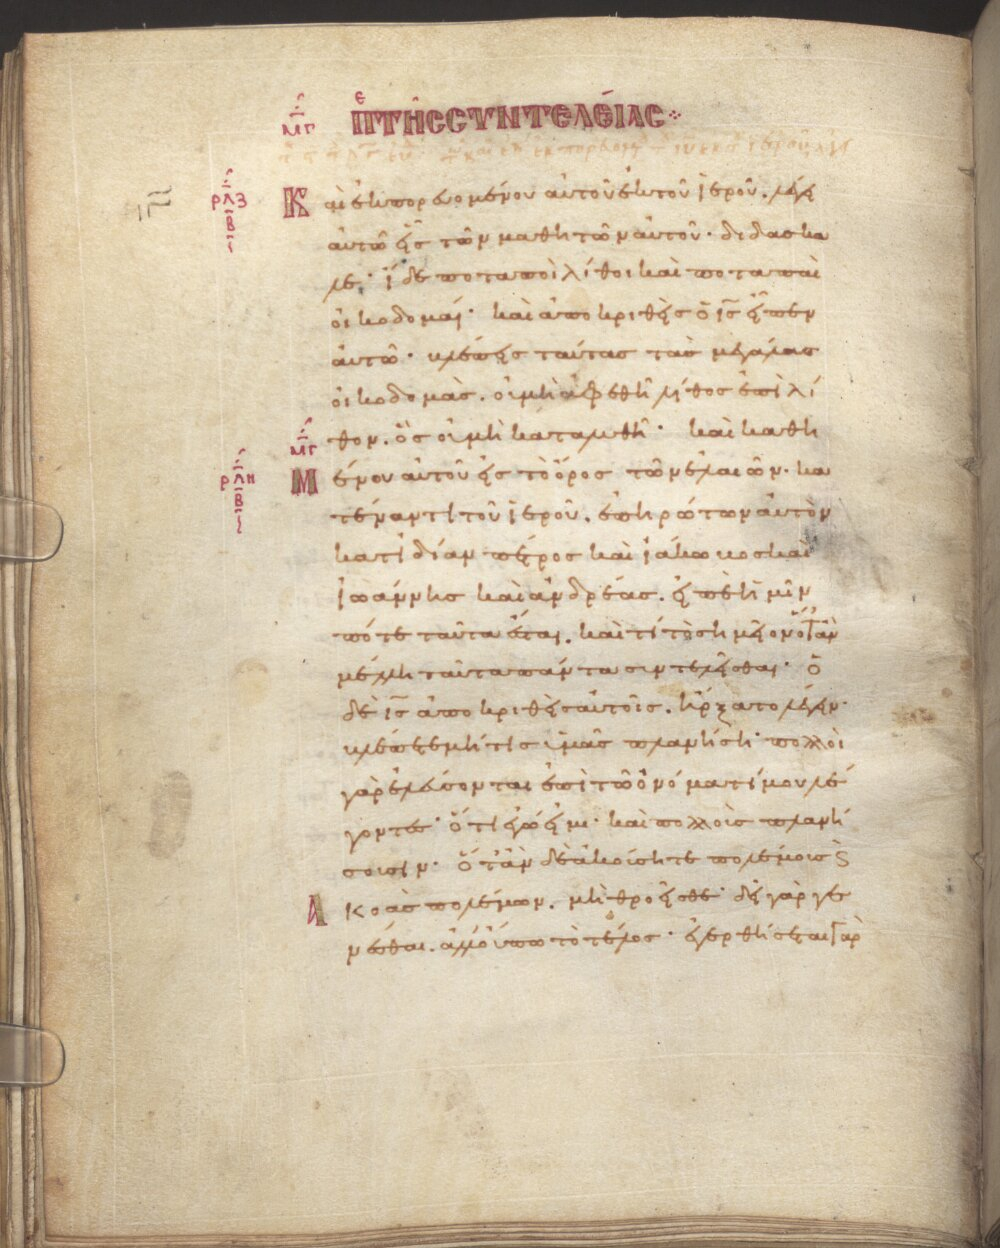 μγ πε̅ρ τῆς συντελείας
Καὶ ἐκπορευομένου αὐτοῦ ἐκ τοῦ ἱεροῦ. λέγει
αὐτῶ εἷς τῶν μαθητῶν αὐτοῦ· διδάσκα
λε· ἴδε ποταποὶ λίθοι καὶ ποταπαὶ
οἰκοδομαί· καὶ ἀποκριθεὶς ὁ ι̅ς̅ εἶπεν
αὐτῶ· βλέπεις ταύτας τὰς μεγάλας
οἰκοδομάς. οὐ μὴ ἀφεθῆ λίθος ἐπὶ λί
μγ θον. ὃς οὐ μὴ καταλυθῆ· καὶ καθη
ρλη β Μένου αὐτοῦ εἰς τὸ ὄρος τῶν ἐλαιῶν. κα
τέναντι τοῦ ἱεροῦ. ἐπηρώτων αὐτὸν
κατιδίαν πέτρος καὶ ἰάκωβος καὶ
ἰωάννης καὶ ἀνδρέας. εἰπὲ ἡμῖν
πότε ταῦτα ἔσται. καὶ τί τὸ σημεῖον ὅταν
μέλλη ταῦτα πάντα συντελεῖσθαι· ὁ
δὲ ι̅ς̅ ἀποκριθεὶς αὐτοῖς. ἤρξατο λέγειν·
βλέπετε μή τις ὑμᾶς πλανήση· πολλοὶ
γὰρ ἐλεύσονται ἐπὶ τῶ ὀνόματί μου λέ
γοντες· ὅτι ἐγώ εἰμι· καὶ πολλοὺς πλανή
σουσιν· ὅταν δὲ ἀκούσητε πολέμους ϗ
Ἀκοὰς πολέμων. μὴ θροεῖσθε· δεῖ γὰρ γε
νέσθαι. ἀλλ᾽ οὔπω τὸ τέλος· ἐγερθήσεται γὰρ